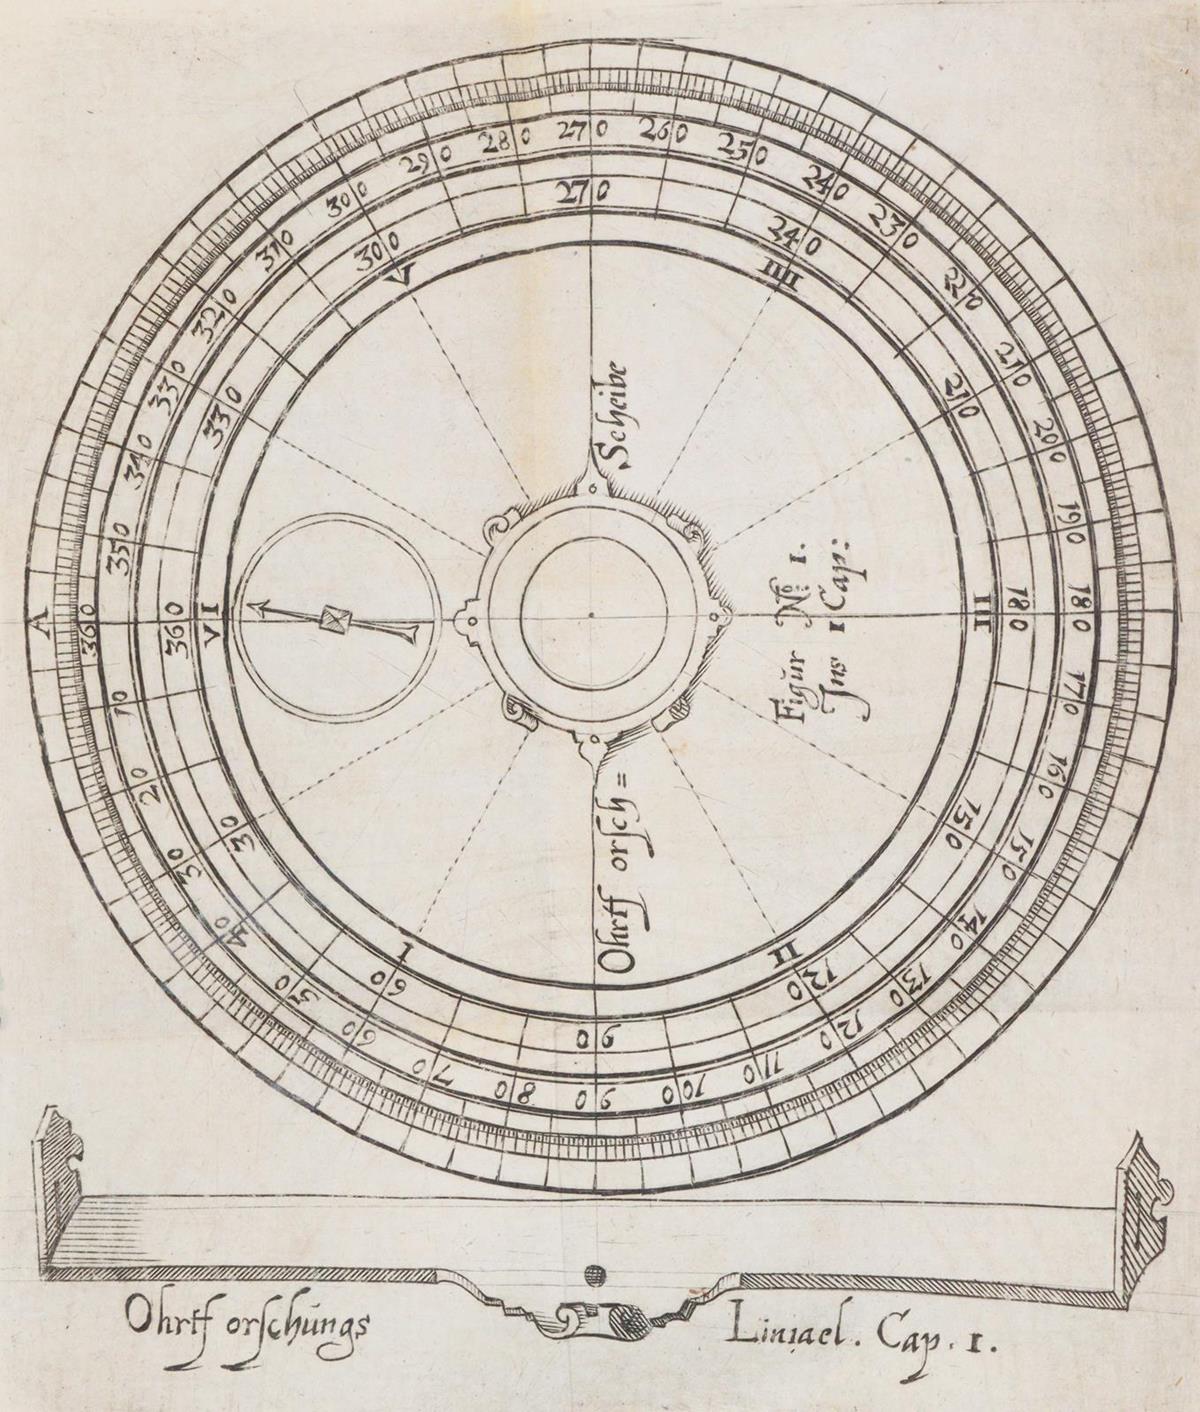 A
360
10
20
30
40
50
60
70
80
90
100
110
120
130
140
150
160
170
180
190
200
210
220
230
240
250
260
270
280
290
300
310
320
330
340
350
360
30
60
90
120
150
180
210
240
270
300
330
I
II
III
IIII
V
VI
Ohrtf orſch= Scheibe
Figŭr No: 1.
Ins 1 Cap:
Ohrtf orſchŭngs Liniael. Cap. 1.